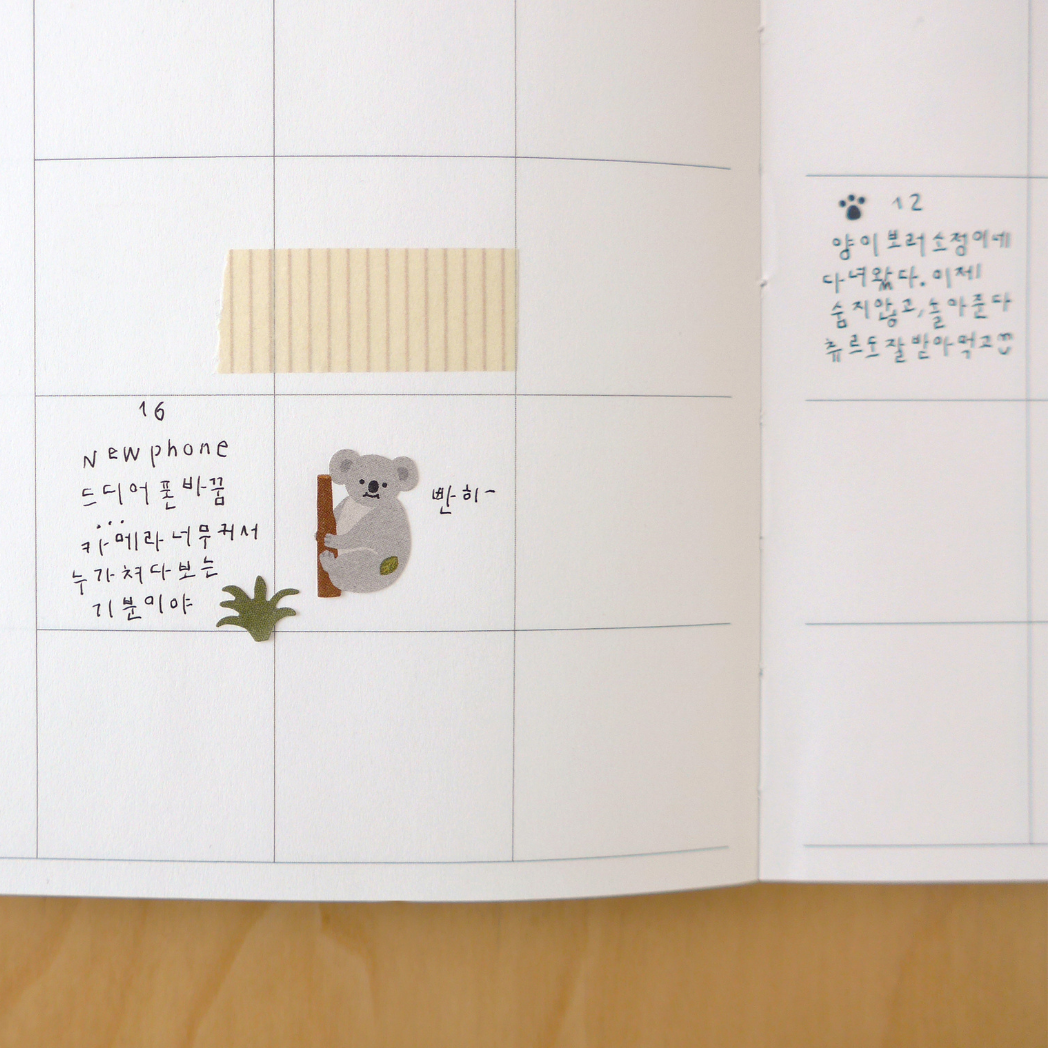 16
New phone
드디어 폰바꿈
...
카메라 너무 커서
누가 쳐다보는
기분이야
빤히~
12
양이 보러 소정이네
다녀왔다. 이제
숨지않고, 놀아준다
츄르도 잘 받아먹고